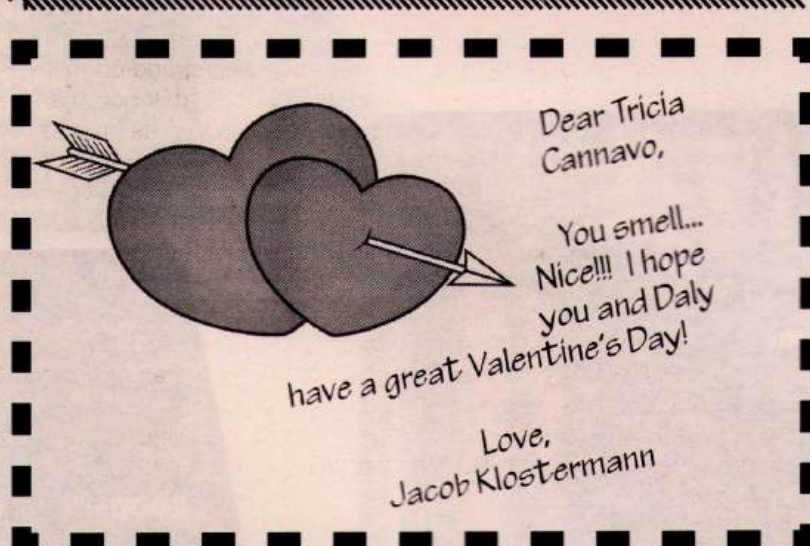 Dear Tricia
Cannavo,
You smell...
Nice!!! I hope
you and Daly
have a great Valentine's Day!
Love,
Jacob Klostermann